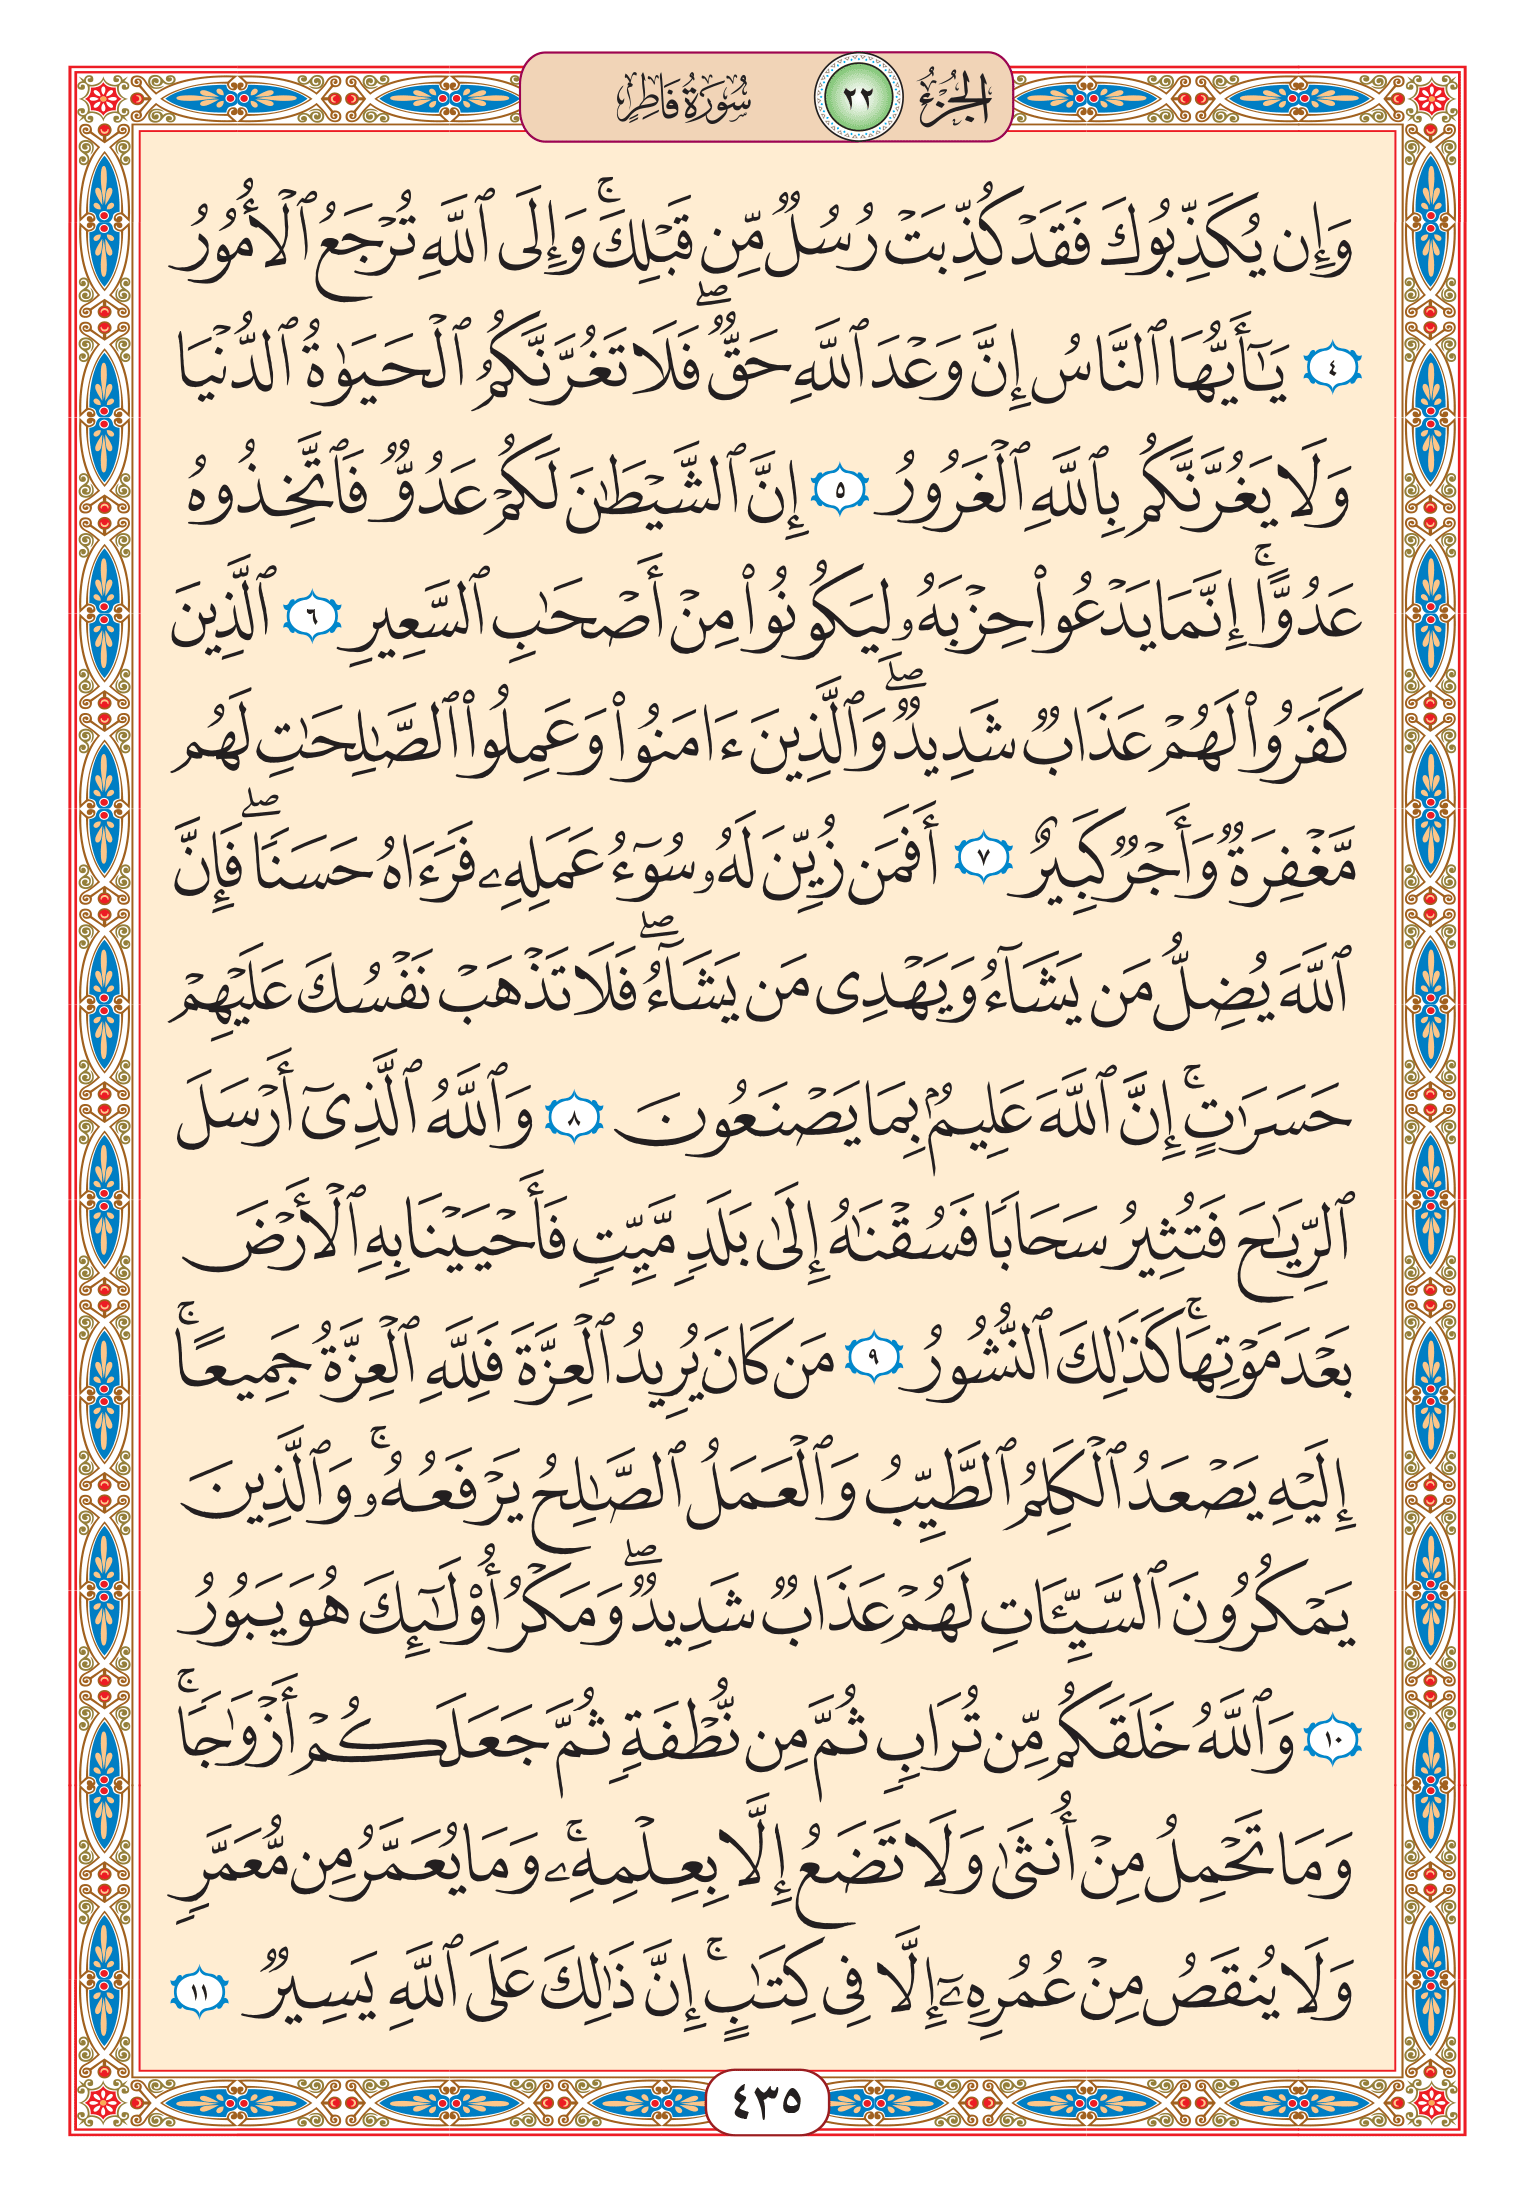 الجزء ٢٢ سورة فاطر
وَإِن يُكَذِّبُوكَ فَقَدْ كُذِّبَتْ رُسُلٌ مِّن قَبْلِكَ ۚ وَإِلَى ٱللَّهِ تُرْجَعُ ٱلْأُمُورُ
٤ يَـٰٓأَيُّهَا ٱلنَّاسُ إِنَّ وَعْدَ ٱللَّهِ حَقٌّ ۖ فَلَا تَغُرَّنَّكُمُ ٱلْحَيَوٰةُ ٱلدُّنْيَا
وَلَا يَغُرَّنَّكُم بِٱللَّهِ ٱلْغَرُورُ ٥ إِنَّ ٱلشَّيْطَـٰنَ لَكُمْ عَدُوٌّ فَٱتَّخِذُوهُ
عَدُوًّا ۚ إِنَّمَا يَدْعُوا۟ حِزْبَهُۥ لِيَكُونُوا۟ مِنْ أَصْحَـٰبِ ٱلسَّعِيرِ ٦ ٱلَّذِينَ
كَفَرُوا۟ لَهُمْ عَذَابٌ شَدِيدٌ ۖ وَٱلَّذِينَ ءَامَنُوا۟ وَعَمِلُوا۟ ٱلصَّـٰلِحَـٰتِ لَهُم
مَّغْفِرَةٌ وَأَجْرٌ كَبِيرٌ ٧ أَفَمَن زُيِّنَ لَهُۥ سُوٓءُ عَمَلِهِۦ فَرَءَاهُ حَسَنًا ۖ فَإِنَّ
ٱللَّهَ يُضِلُّ مَن يَشَآءُ وَيَهْدِى مَن يَشَآءُ ۖ فَلَا تَذْهَبْ نَفْسُكَ عَلَيْهِمْ
حَسَرَٰتٍ ۚ إِنَّ ٱللَّهَ عَلِيمٌۢ بِمَا يَصْنَعُونَ ٨ وَٱللَّهُ ٱلَّذِىٓ أَرْسَلَ
ٱلرِّيَـٰحَ فَتُثِيرُ سَحَابًا فَسُقْنَـٰهُ إِلَىٰ بَلَدٍ مَّيِّتٍ فَأَحْيَيْنَا بِهِ ٱلْأَرْضَ
بَعْدَ مَوْتِهَا ۚ كَذَٰلِكَ ٱلنُّشُورُ ٩ مَن كَانَ يُرِيدُ ٱلْعِزَّةَ فَلِلَّهِ ٱلْعِزَّةُ جَمِيعًا ۚ
إِلَيْهِ يَصْعَدُ ٱلْكَلِمُ ٱلطَّيِّبُ وَٱلْعَمَلُ ٱلصَّـٰلِحُ يَرْفَعُهُۥ ۚ وَٱلَّذِينَ
يَمْكُرُونَ ٱلسَّيِّـَٔاتِ لَهُمْ عَذَابٌ شَدِيدٌ ۖ وَمَكْرُ أُو۟لَـٰٓئِكَ هُوَ يَبُورُ
١٠ وَٱللَّهُ خَلَقَكُم مِّن تُرَابٍ ثُمَّ مِن نُّطْفَةٍ ثُمَّ جَعَلَكُمْ أَزْوَٰجًا ۚ
وَمَا تَحْمِلُ مِنْ أُنثَىٰ وَلَا تَضَعُ إِلَّا بِعِلْمِهِۦ ۚ وَمَا يُعَمَّرُ مِن مُّعَمَّرٍ
وَلَا يُنقَصُ مِنْ عُمُرِهِۦٓ إِلَّا فِى كِتَـٰبٍ ۚ إِنَّ ذَٰلِكَ عَلَى ٱللَّهِ يَسِيرٌ ١١
٤٣٥